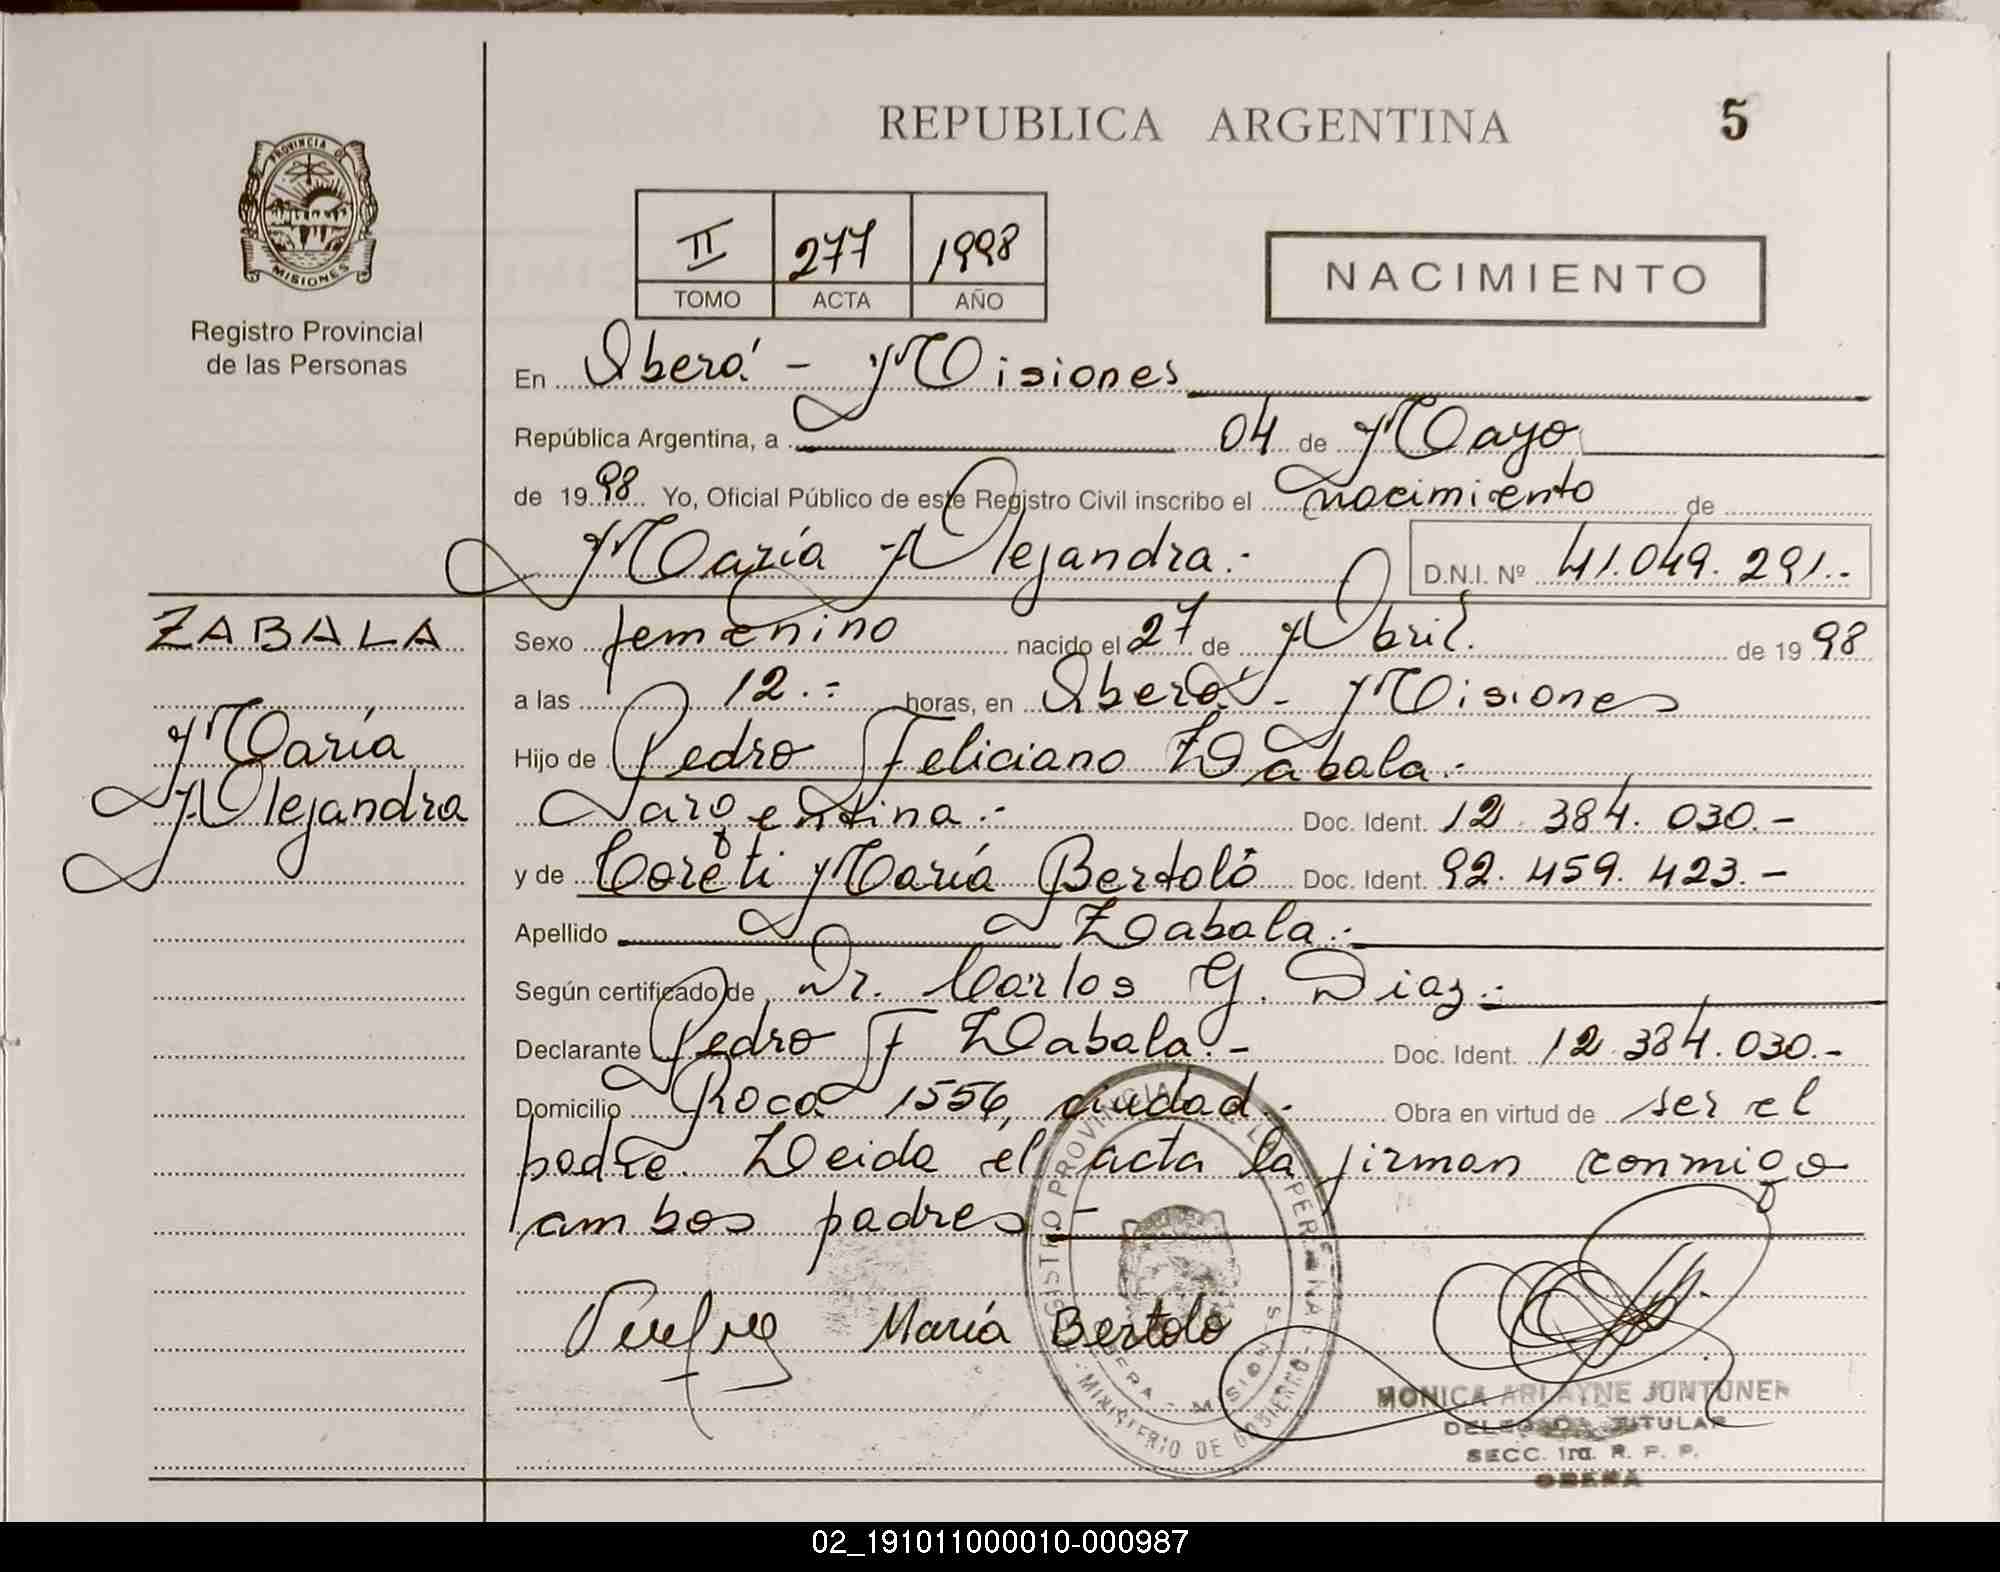 REPUBLICA ARGENTINA
5
PROVINCIA DE
MISIONES
Registro Provincial
de las Personas
II 277 1998
TOMO ACTA AÑO
NACIMIENTO
En Oberá - Misiones
República Argentina, a 04 de Mayo
de 1998 Yo, Oficial Público de este Registro Civil inscribo el nacimiento de
María Alejandra.- D.N.I. Nº 41.049.291.-
ZABALA
María
Alejandra
Sexo femenino nacido el 27 de Abril. de 1998
a las 12.- horas, en Oberá - Misiones
Hijo de Pedro Feliciano Zabala.-
argentina.- Doc. Ident. 12.384.030.-
y de María Bertoló Doc. Ident. 92.459.423.-
Apellido Zabala.-
Según certificado de Dr. Carlos G. Diaz.-
Declarante Pedro F Zabala.- Doc. Ident. 12.384.030.-
Domicilio Roca 1556, ciudad.- Obra en virtud de ser el
padre. Leida el acta la firman conmigo
ambos padres.-
María Bertoló
REGISTRO PROVINCIAL DE LAS PERSONAS
MINISTERIO DE GOBIERNO
OBERA - MISIONES
MONICA ARLAYNE JUNTUNEN
DELEGADA TITULAR
SECC. 1ra. R. P. P.
OBERA
02_191011000010-000987